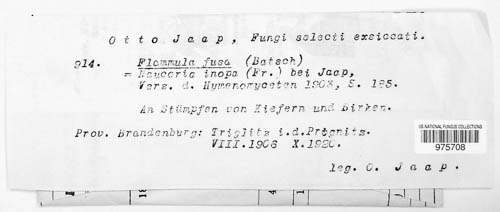 Otto Jaap, Fungi selecti exsiccati.
914. Flammula fusa (Batsch)
= Naucoria inopa (Fr.) bei Jaap,
Verz. d. Hymenomyceten 1903, S. 185.
An Stümpfen von Kiefern und Birken.
Prov. Brandenburg: Triglitz i.d.Prignitz.
VIII.1906 X.1920.
leg. O. Jaap.
US NATIONAL FUNGUS COLLECTIONS
975708